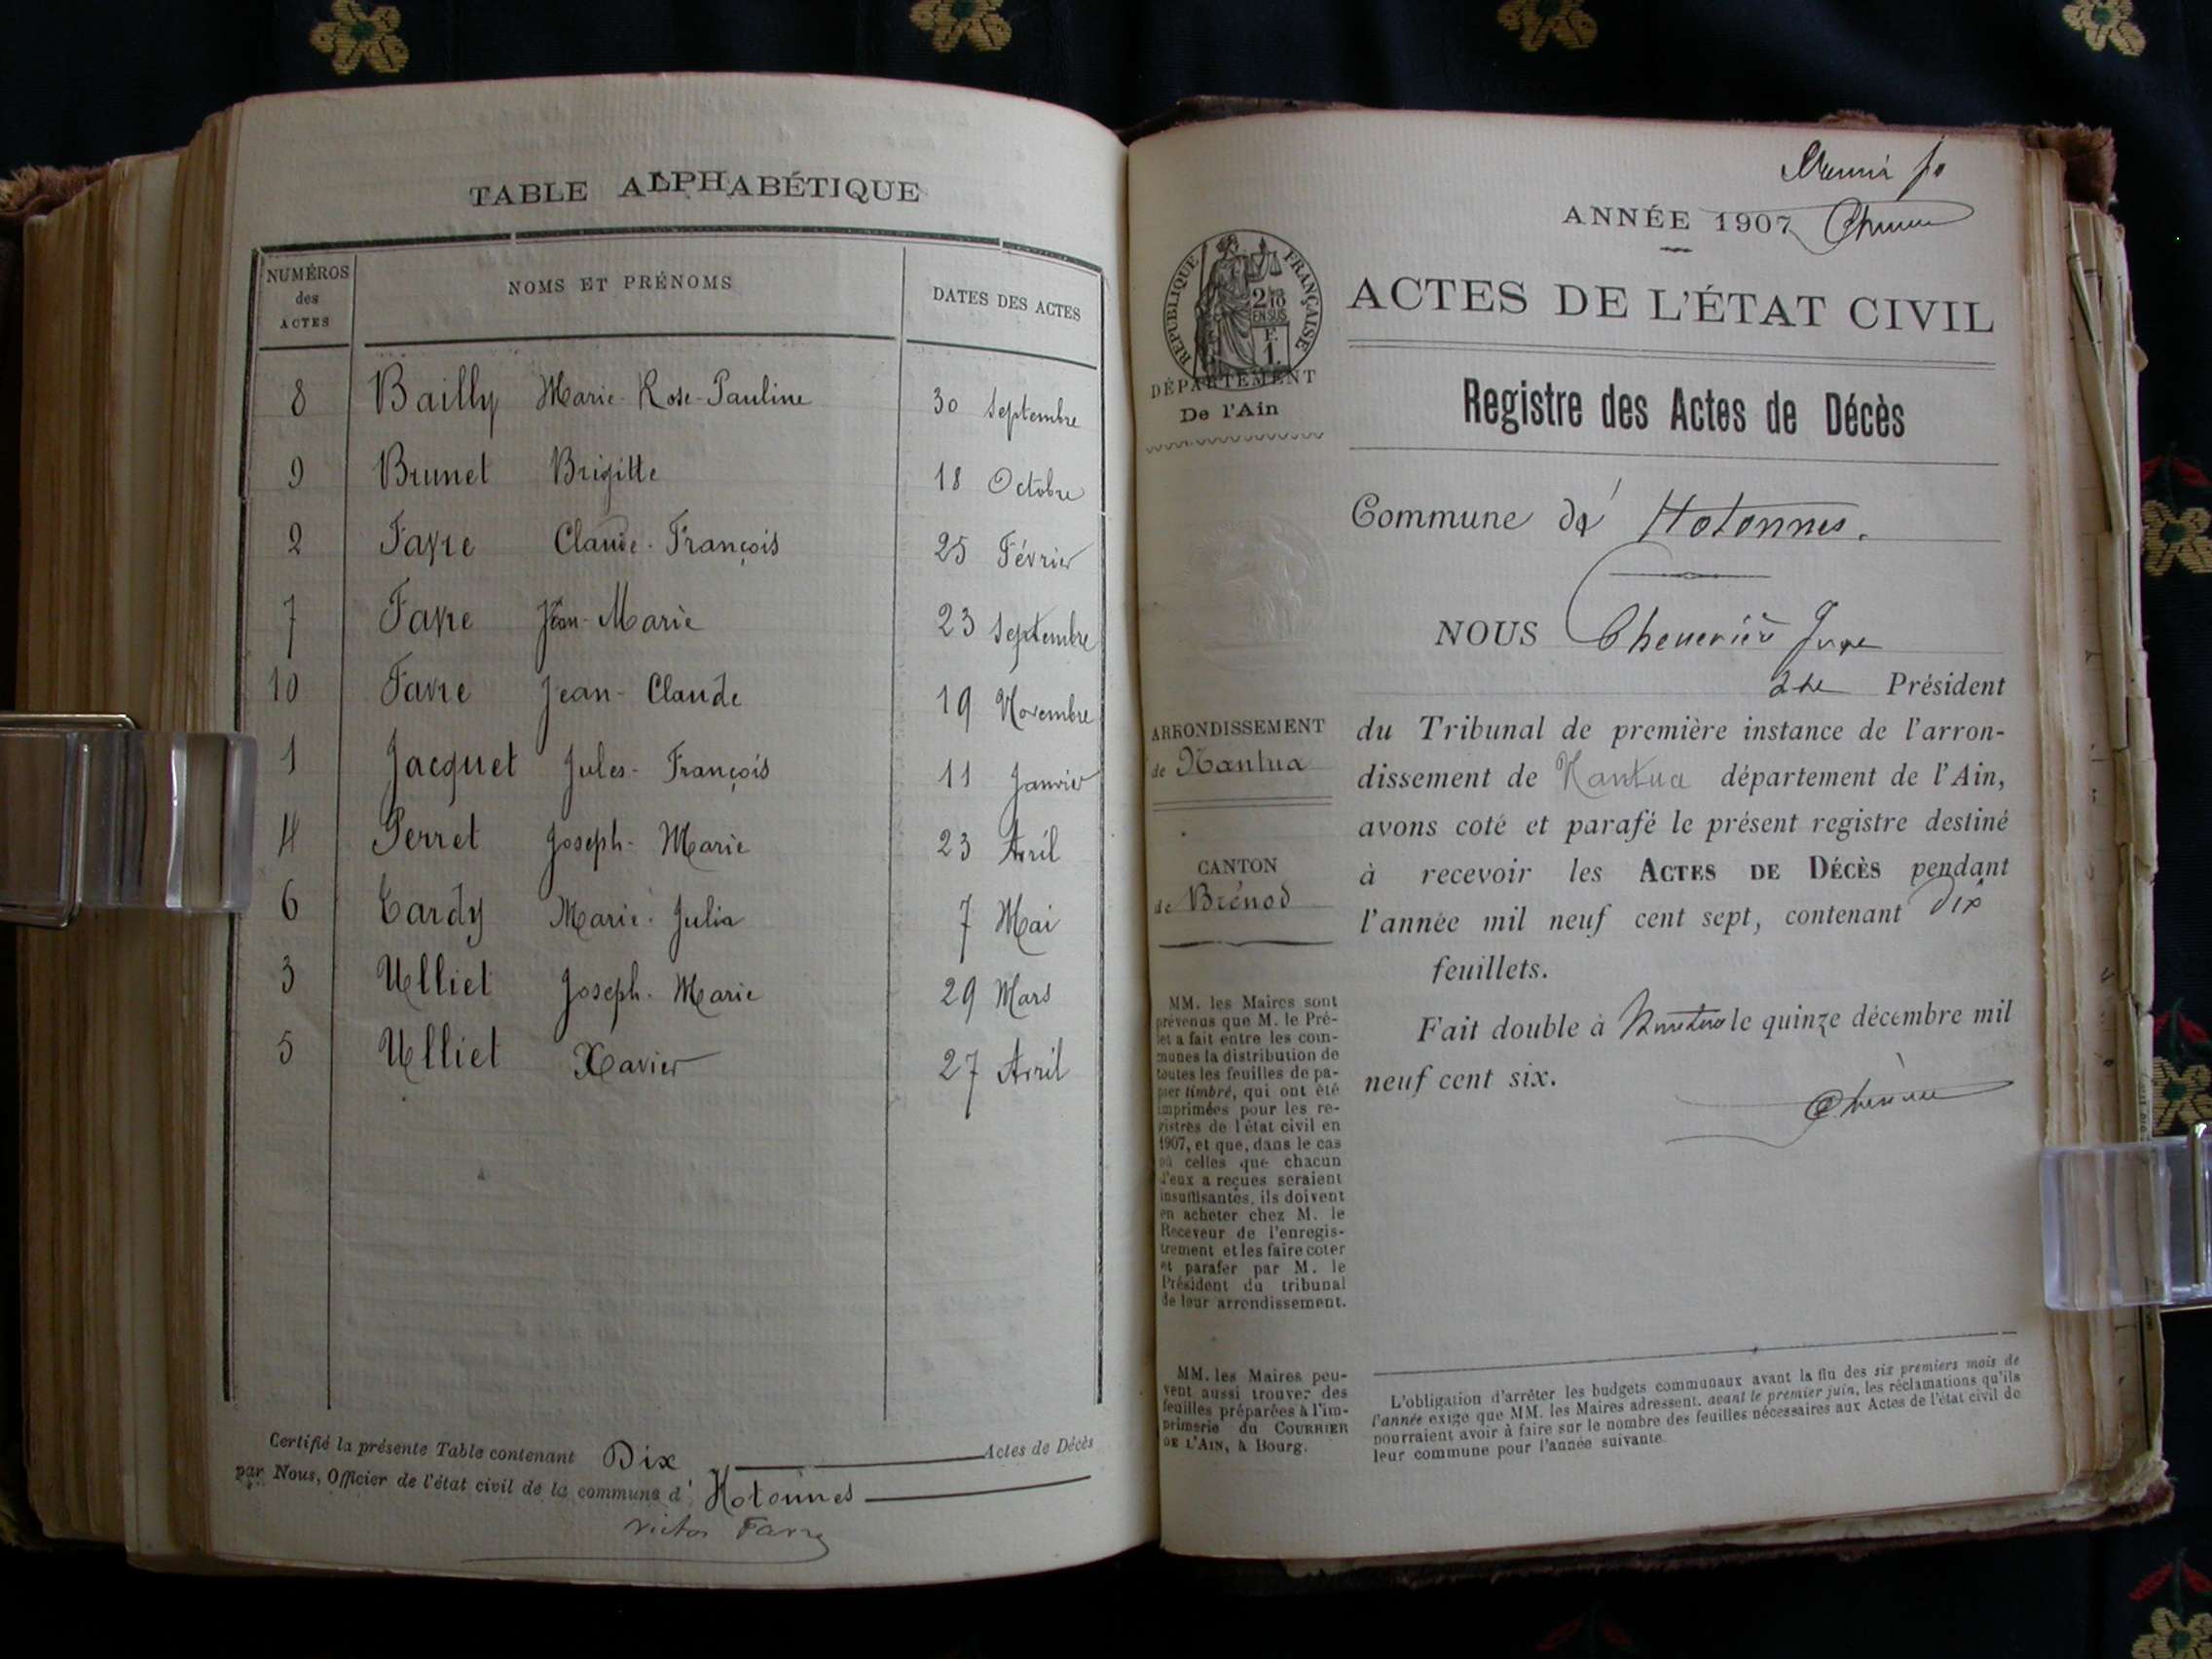 TABLE ALPHABÉTIQUE
NUMÉROS des ACTES
NOMS ET PRÉNOMS
DATES DES ACTES
8 Bailly Marie-Rose-Pauline 30 Septembre
9 Brunet Brigitte 18 Octobre
2 Favre Claude-François 25 Février
7 Favre Jean-Marie 23 Septembre
10 Favre Jean-Claude 19 Novembre
1 Jacquet Jules-François 11 Janvier
4 Perret Joseph-Marie 23 Avril
6 Tardy Marie-Julia 7 Mai
3 Ulliet Joseph-Marie 29 Mars
5 Ulliet Xavier 27 Avril
Certifié la présente Table contenant Dix Actes de Décès
par Nous, Officier de l'état civil de la commune d' Hotonnes
Victor Favre
ANNÉE 1907
RÉPUBLIQUE FRANÇAISE
2/10 EN SUS
F. 1.
ACTES DE L'ÉTAT CIVIL
DÉPARTEMENT
De l'Ain
Registre des Actes de Décès
Commune d' Hotonnes.
NOUS
Président
ARRONDISSEMENT
de Nantua
CANTON
de Brénod
du Tribunal de première instance de l'arron-
dissement de Nantua département de l'Ain,
avons coté et parafé le présent registre destiné
à recevoir les ACTES DE DÉCÈS pendant
l'année mil neuf cent sept, contenant Dix
feuillets.
Fait double à Nantua le quinze décembre mil
neuf cent six.
MM. les Maires sont
prévenus que M. le Pré-
fet a fait entre les com-
munes la distribution de
toutes les feuilles de pa-
pier timbré, qui ont été
imprimées pour les re-
gistres de l'état civil en
1907, et que, dans le cas
où celles que chacun
d'eux a reçues seraient
insuffisantes, ils doivent
en acheter chez M. le
Receveur de l'enregis-
trement et les faire coter
et parafer par M. le
Président du tribunal
de leur arrondissement.
MM. les Maires peu-
vent aussi trouver des
feuilles préparées à l'im-
primerie du COURRIER
DE L'AIN, à Bourg.
L'obligation d'arrêter les budgets communaux avant la fin des six premiers mois de
l'année exige que MM. les Maires adressent, avant le premier juin, les réclamations qu'ils
pourraient avoir à faire sur le nombre des feuilles nécessaires aux Actes de l'état civil de
leur commune pour l'année suivante.